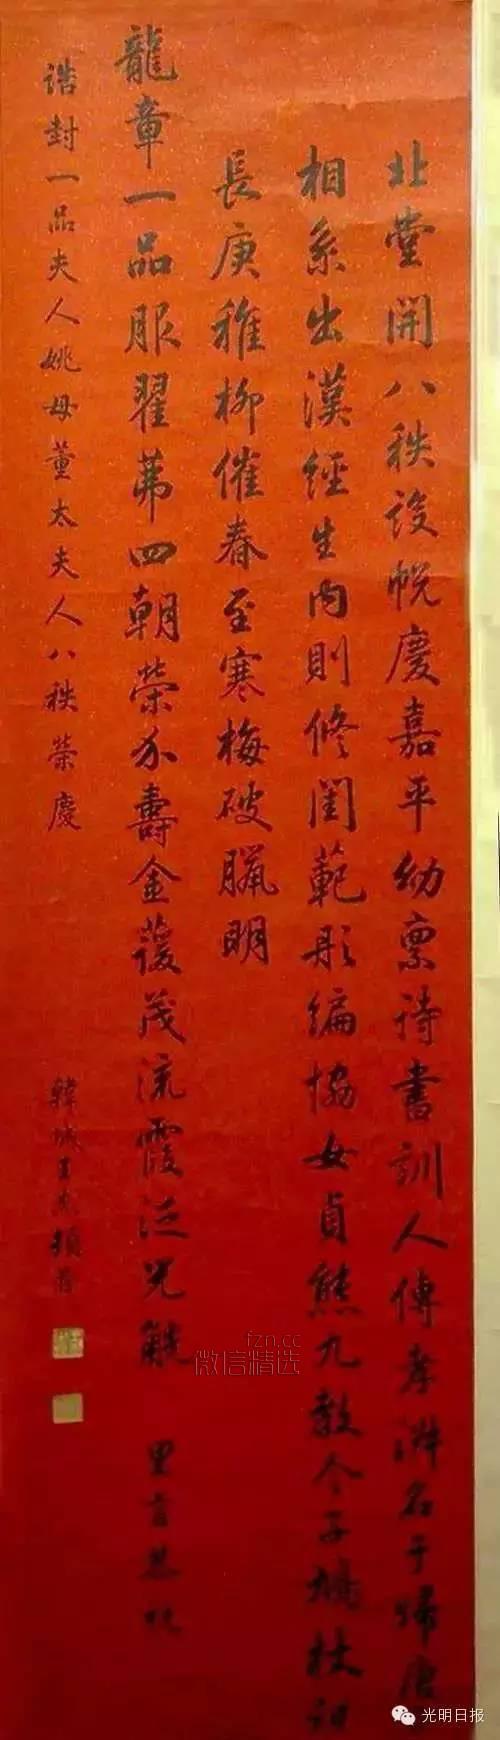 北堂開八秩設帨慶嘉平幼禀詩書訓人傳孝淑名于歸唐
相系出漢經生內則修閨範彤編協女貞熊丸教令子鳩杖祝
長庚稚柳催春至寒梅破臘明
龍章一品服翟茀四朝榮介壽金萱茂流霞泛兕觥 里言恭祝
誥封一品夫人姚母董太夫人八秩榮慶
韓城王杰頓首
fzn.cc
微信精选
光明日报